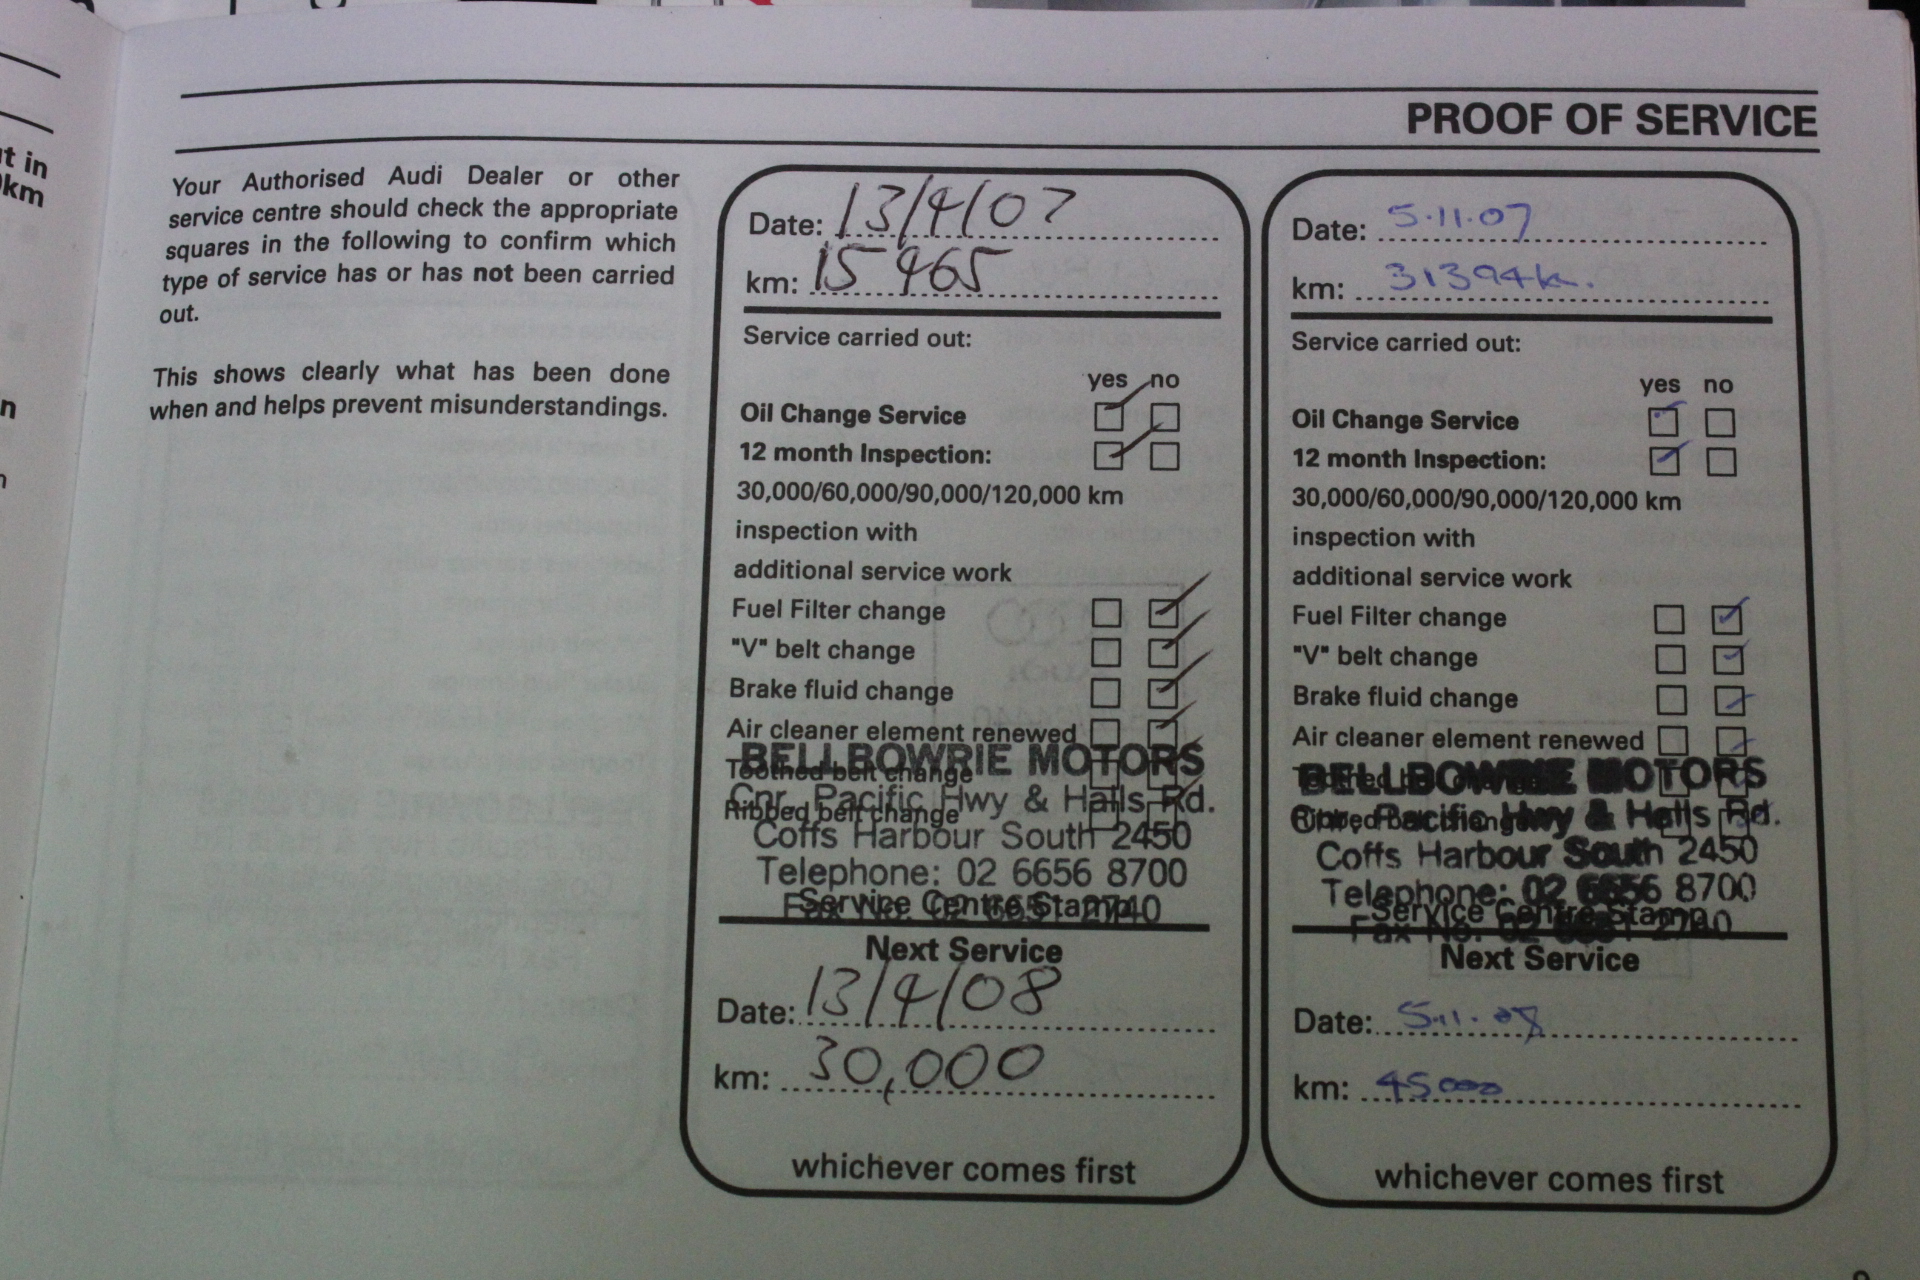 t in
km
n
PROOF OF SERVICE
Your Authorised Audi Dealer or other
service centre should check the appropriate
squares in the following to confirm which
type of service has or has not been carried
out.
This shows clearly what has been done
when and helps prevent misunderstandings.
Date: 13/4/07
km: 15 465
Service carried out:
yes no
Oil Change Service
12 month Inspection:
30,000/60,000/90,000/120,000 km
inspection with
additional service work
Fuel Filter change
"V" belt change
Brake fluid change
Air cleaner element renewed
BELLBOWRIE MOTORS
Toothed belt change
Cnr. Pacific Hwy & Halls Rd.
Ribbed belt change
Coffs Harbour South 2450
Telephone: 02 6656 8700
Service Centre Stamp
Fax No. 02 6651 2740
Next Service
Date: 13/4/08
km: 30,000
whichever comes first
Date: 5.11.07
km: 31394k.
Service carried out:
yes no
Oil Change Service
12 month Inspection:
30,000/60,000/90,000/120,000 km
inspection with
additional service work
Fuel Filter change
"V" belt change
Brake fluid change
Air cleaner element renewed
BELLBOWRIE MOTORS
Toothed belt change
Cnr. Pacific Hwy & Halls Rd.
Ribbed belt change
Coffs Harbour South 2450
Telephone: 02 6656 8700
Service Centre Stamp
Fax No. 02 6651 2740
Next Service
Date: 5.11.08
km: 45000
whichever comes first